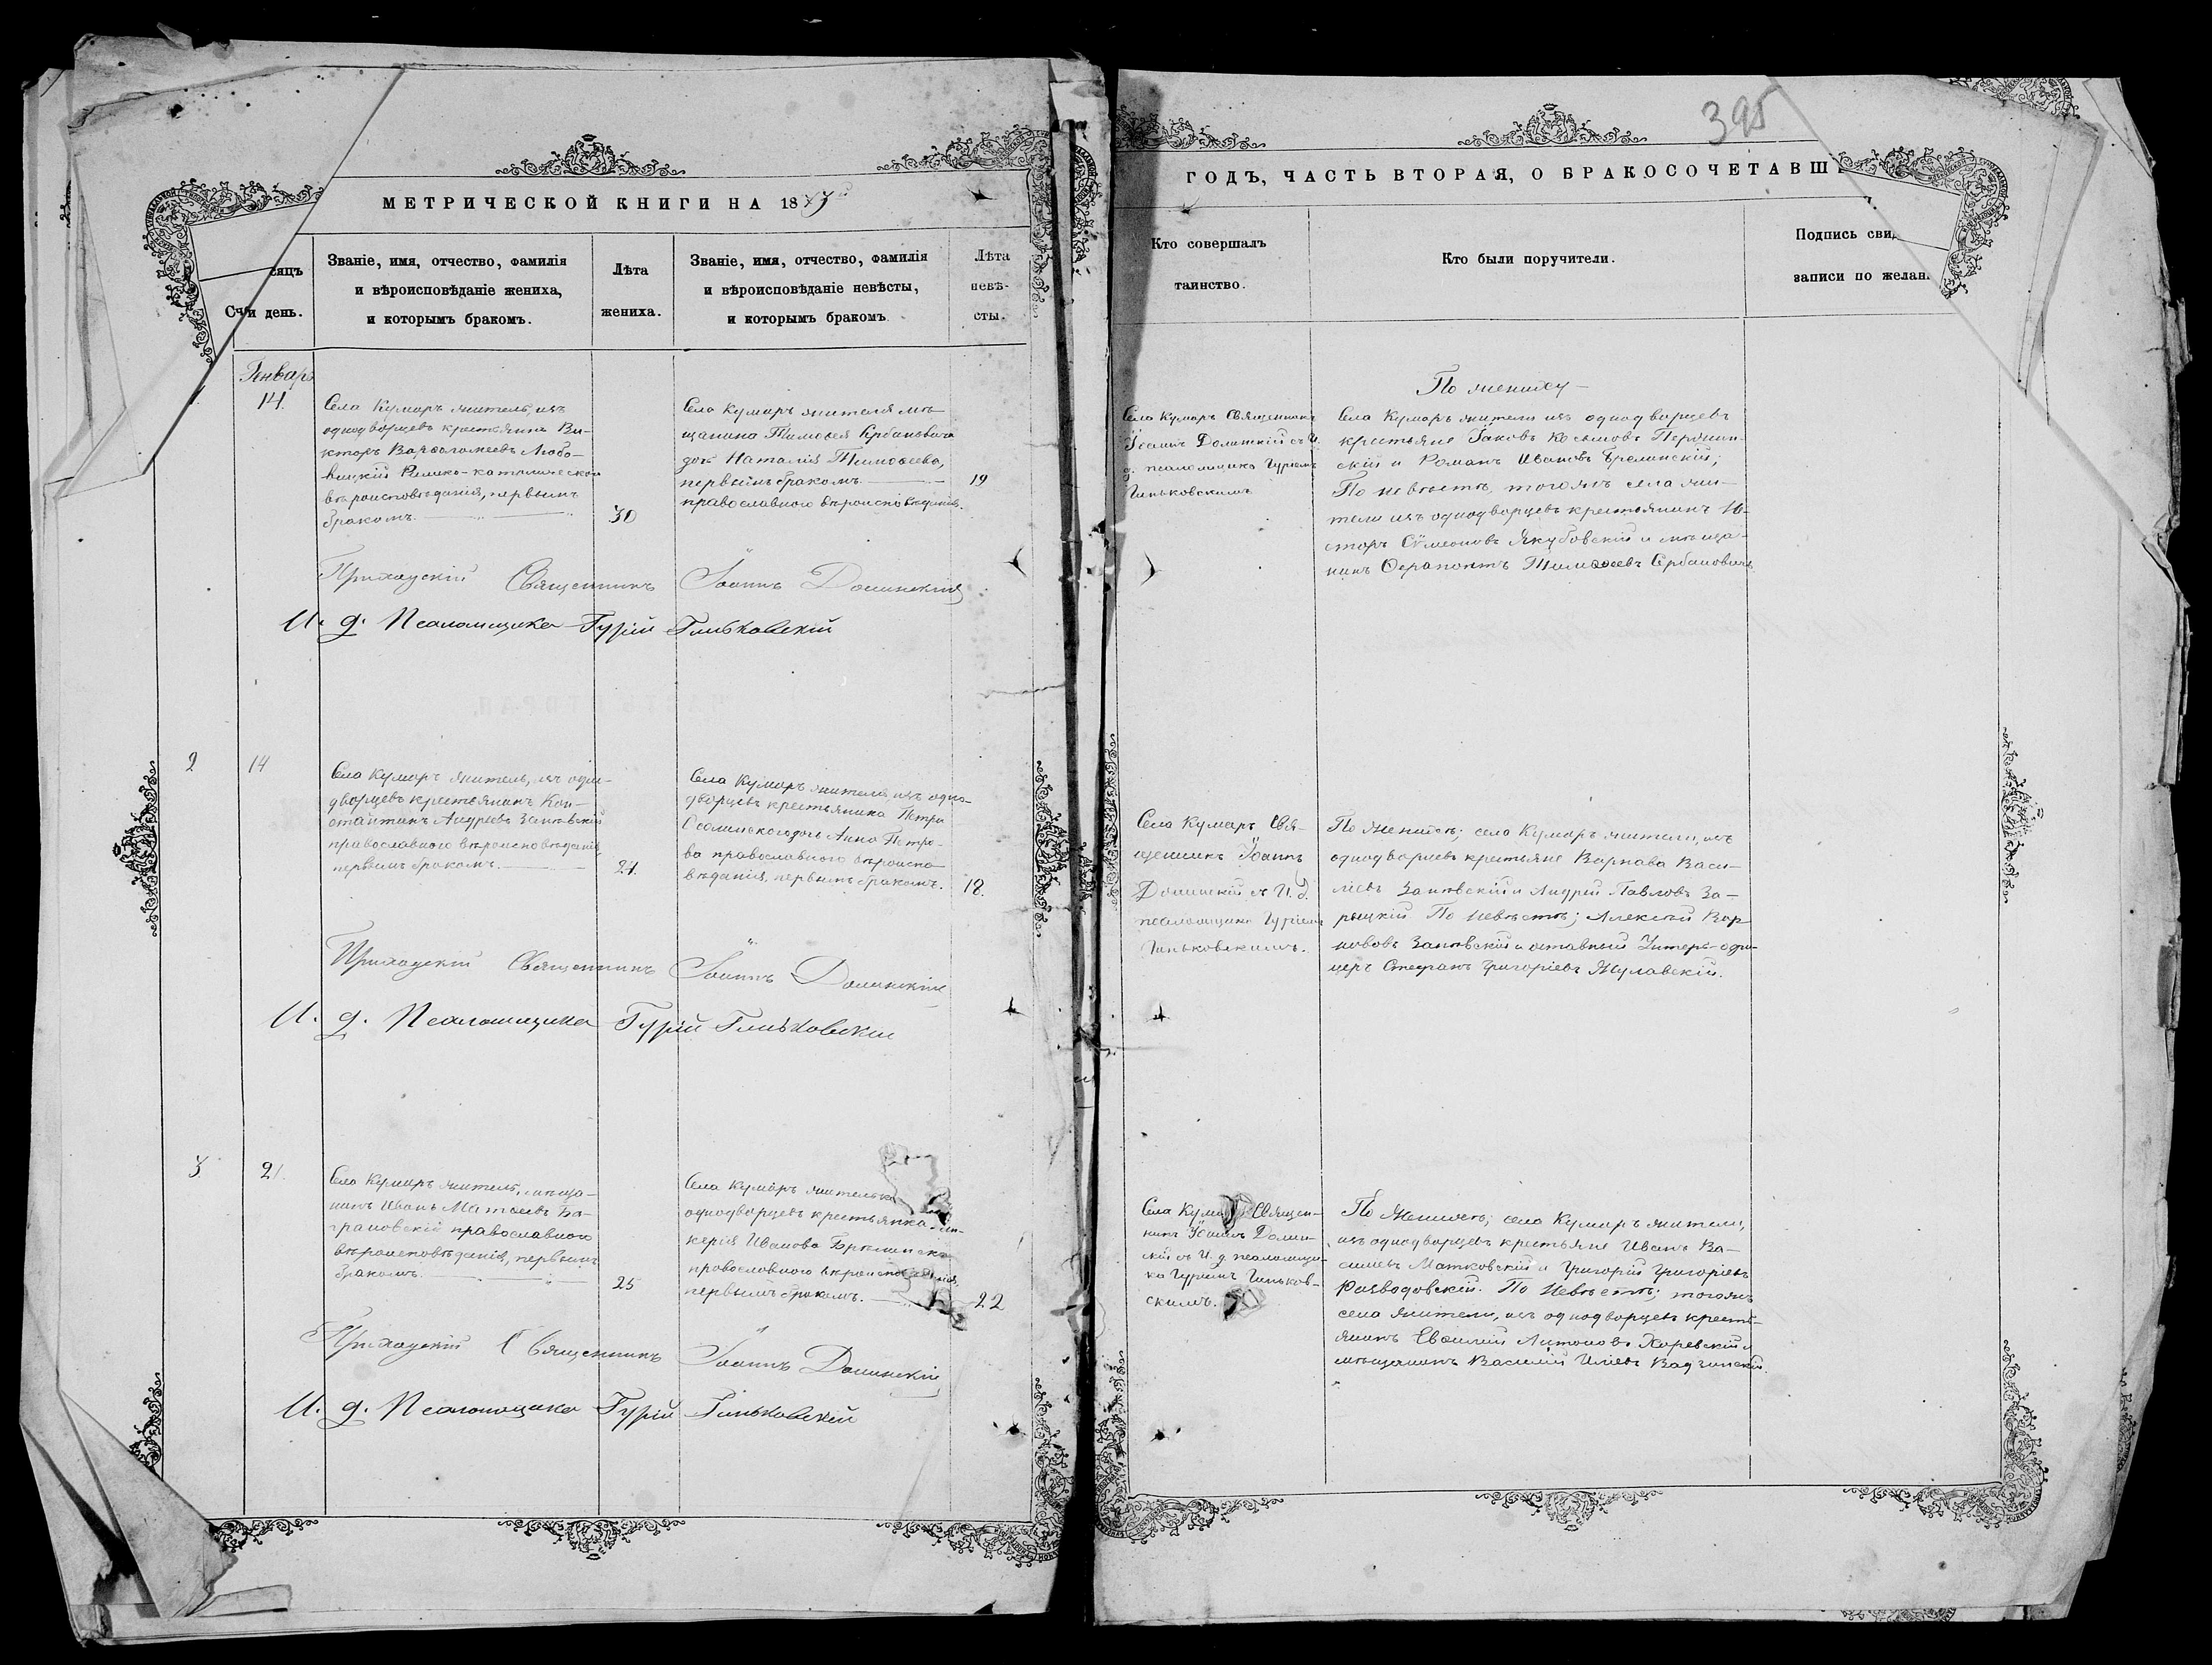 395
МЕТРИЧЕСКОЙ КНИГИ НА 1873
ГОДЪ, ЧАСТЬ ВТОРАЯ, О БРАКОСОЧЕТАВШ
Сч
сяцъ
и день.
Званіе, имя, отчество, фамилія
и вѣроисповѣданіе жениха,
и которымъ бракомъ.
Лѣта
жениха.
Званіе, имя, отчество, фамилія
и вѣроисповѣданіе невѣсты,
и которымъ бракомъ
Лѣта
невѣ-
сты.
Кто совершалъ
таинство.
Кто были поручители.
Подпись свид
записи по желан
1
Январь
14.
Села Кумаръ житель, изъ
однодворцевъ крестьянинъ Ви-
кторъ Варѳоломеевъ Любо-
вицкій Римско-католическаго
вѣроисповѣданія, первымъ
бракомъ.
30
Села Кумаръ жителя мѣ-
щанина Тимоѳея Сербановича
дочь Наталія Тимоѳеева,
первымъ бракомъ
православного вѣроисповѣданія.
19
Села Кумаръ Священникъ
Іоаннъ Долинскій съ И.
д. псаломщика Гуріемъ
Гиньковскимъ
По женихѣ
Села Кумаръ жители изъ однодворцевъ
крестьяне Іаковъ Косьмовъ
скій и Романъ Ивановъ Брелинскій;
По невѣстѣ, тогожъ села жи-
тели изъ однодворцевъ крестьянинъ
Сѵмеоновъ Якубовскій и мѣща-
нинъ Ѳерапонтъ Тимоѳеевъ Сербановичъ
Приходскій Священникъ Іоаннъ Долинскій
И. д. Псаломщика Гурій Гиньковскій
2
14
Села Кумаръ житель, изъ одно-
дворцевъ крестьянинъ Кон-
стантинъ Андреевъ Заневскій
православного вѣроисповѣданія,
первымъ бракомъ.
21.
Села Кумаръ жителя, изъ одно-
дворцевъ крестьянина Петра
Осолинского дочь Анна Петро-
ва православного вѣроиспо-
вѣданія, первымъ бракомъ.
18.
Села Кумаръ Свя-
щенникъ Іоаннъ
Долинскій съ И. д.
псаломщика Гуріемъ
Гиньковскимъ.
По женихѣ; села Кумаръ жители, изъ
однодворцевъ крестьяне Варнава Васи-
ліевъ Заневскій и Андрей Павловъ За-
рыцкій По невѣстѣ; Алексѣй Вар-
новъ Заневскій и отставный Унтеръ-офи-
церъ Стефанъ Григоріевъ Жулавскій.
Приходскій Священникъ Іоаннъ Долинскій
И. д. Псаломщика Гурій Гиньковскій
3
21.
Села Кумаръ житель, мѣща-
нинъ Иванъ Матѳеевъ Ба-
грановскій православного
вѣроисповѣданія, первымъ
бракомъ.
25
Села Кумаръ жителька
однодворцевъ крестьянка
керія Иванова Брелинска
православного вѣроисповѣданія,
первымъ бракомъ.
22
Села Кумаръ Священ-
никъ Іоаннъ Долин-
скій съ И. д. псаломщи-
ка Гуріемъ Гиньков-
скимъ.
По женихѣ; села Кумаръ жители,
изъ однодворцевъ крестьяне Иванъ Ва-
силіевъ Матковскій и Григорій Григоріевъ
Разводовскій. По невѣстѣ; тогожъ
села жители, изъ однодворцевъ кресть-
янинъ Евѳимій Антоновъ Харевскій и
мѣщанинъ Василій Иліевъ Вадзинскій.
Приходскій Священникъ Іоаннъ Долинскій
И. д. Псаломщика Гурій Гиньковскій